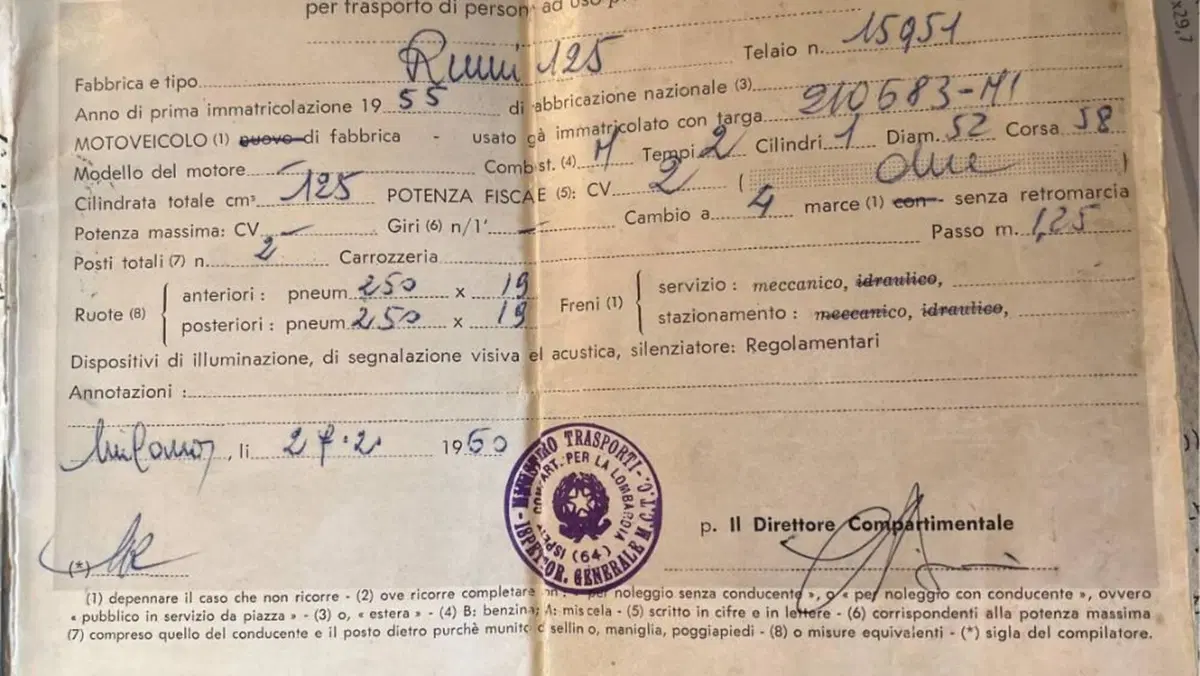 per trasporto di person ad uso p
Fabbrica e tipo Rumi 125 Telaio n. 15951
Anno di prima immatricolazione 19 55 di abbricazione nazionale (3)
MOTOVEICOLO (1) nuovo di fabbrica - usato gà immatricolato con targa 210683-M1
Modello del motore Combst. (4) M Tempi 2 Cilindri 1 Diam. 52 Corsa 58
Cilindrata totale cm³ 125 POTENZA FISCAE (5): CV 2 ( due )
Potenza massima: CV — Giri (6) n/1' — Cambio a 4 marce (1) con - senza retromarcia
Posti totali (7) n. 2 Carrozzeria Passo m. 1,25
Ruote (8) anteriori : pneum 250 x 19 Freni (1) servizio : meccanico, idraulico,
posteriori : pneum 250 x 19 stazionamento : meccanico, idraulico,
Dispositivi di illuminazione, di segnalazione visiva el acustica, silenziatore: Regolamentari
Annotazioni :
Milano, li 27.2 1960
MINISTERO TRASPORTI - ISPETTOR. GENERALE M.C.T.C.
ISPET. COMPART. PER LA LOMBARDIA
(64)
p. Il Direttore Compartimentale
(*)
(1) depennare il caso che non ricorre - (2) ove ricorre completare on : « per noleggio senza conducente », o « per noleggio con conducente », ovvero
« pubblico in servizio da piazza » - (3) o, « estera » - (4) B: benzina; M: miscela - (5) scritto in cifre e in lettere - (6) corrispondenti alla potenza massima
(7) compreso quello del conducente e il posto dietro purchè munito d sellino, maniglia, poggiapiedi - (8) o misure equivalenti - (*) sigla del compilatore.
x29,7